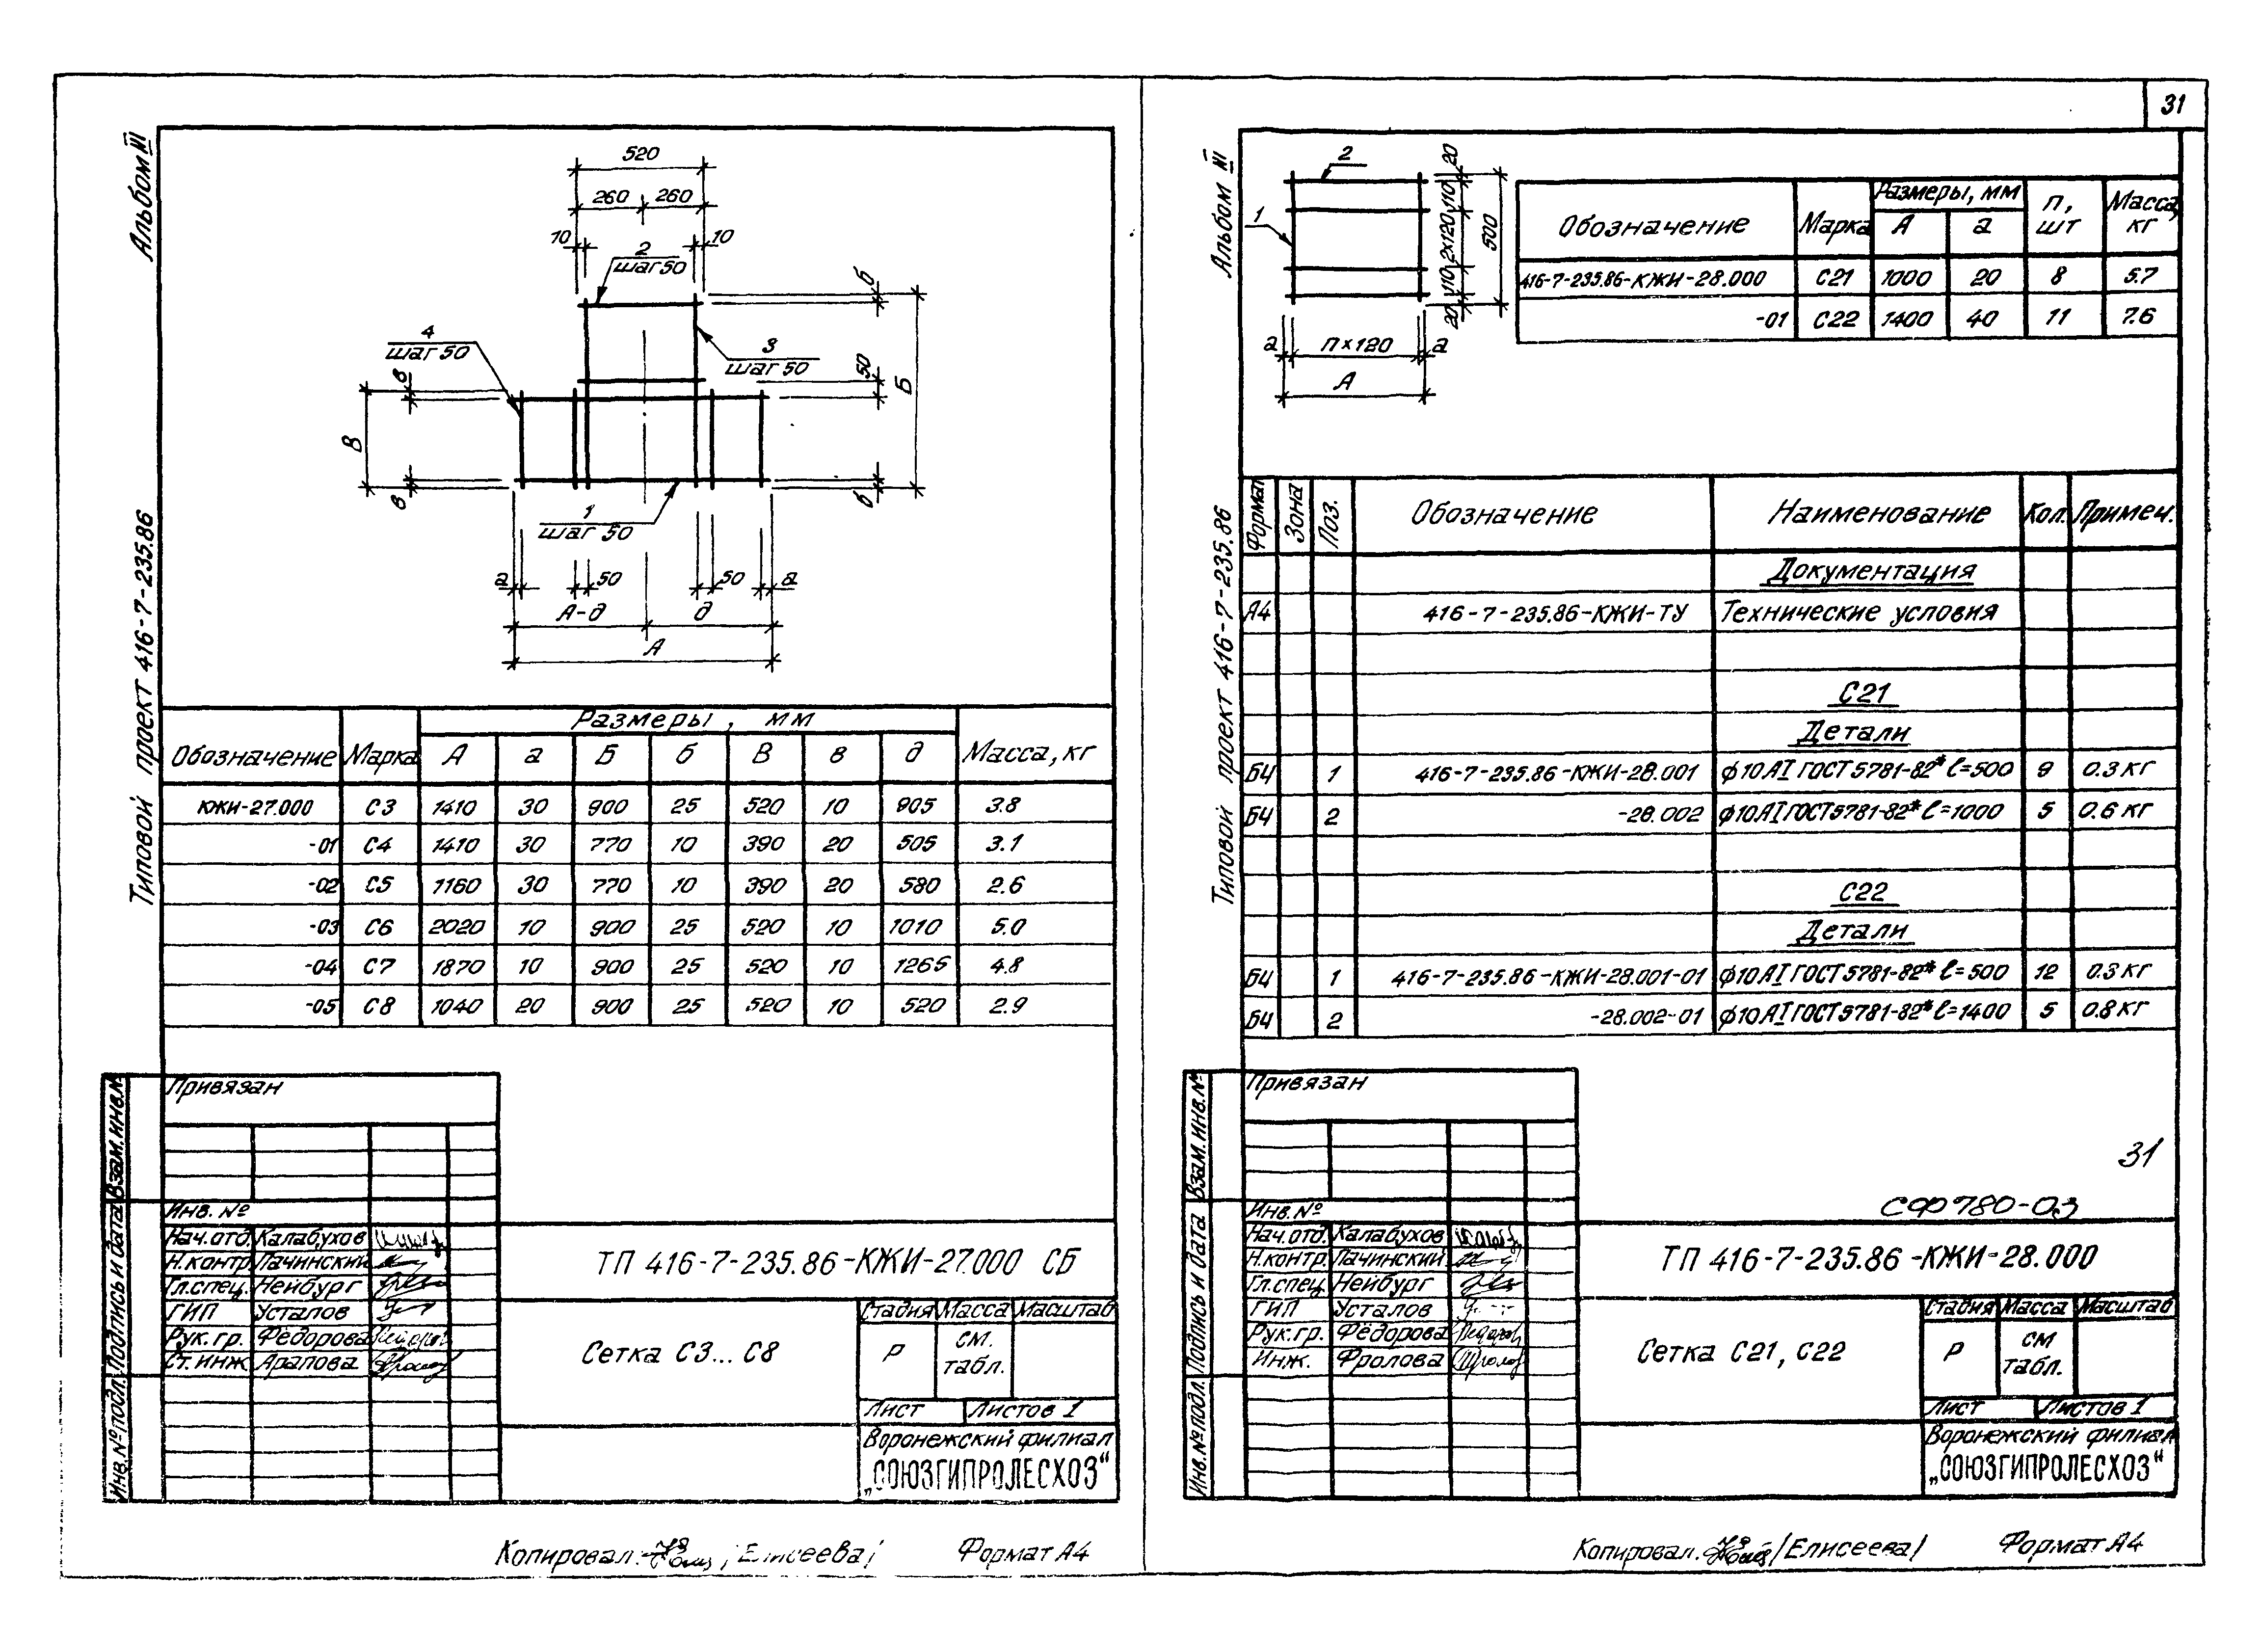 31
Альбом III
Типовой проект 416-7-235.86
520
260 260
10 10
2
шаг 50
4
шаг 50
3
шаг 50
1
шаг 50
б
50
Б
б
в
В
в
а 50 50 а
А-д д
А
Обозначение Марка Размеры, мм Масса, кг
А а Б б В в д
КЖИ-27.000 С3 1410 30 900 25 520 10 905 3.8
-01 С4 1410 30 770 10 390 20 505 3.1
-02 С5 1160 30 770 10 390 20 580 2.6
-03 С6 2020 10 900 25 520 10 1010 5.0
-04 С7 1870 10 900 25 520 10 1265 4.8
-05 С8 1040 20 900 25 520 10 520 2.9
Привязан
Инв. №
Нач.отд. Калабухов
Н.контр. Пачинский
Гл.спец. Нейбург
ГИП Усталов
Рук.гр. Фёдорова
Ст.инж. Арапова
Взам.инв.№
Подпись и дата
Инв.№подл.
ТП 416-7-235.86-КЖИ-27.000 СБ
Сетка С3... С8
Стадия Масса Масштаб
Р см. табл.
Лист Листов 1
Воронежский филиал
„СОЮЗГИПРОЛЕСХОЗ“
Копировал: /Елисеева/ Формат А4
Альбом III
Типовой проект 416-7-235.86
2
1
20
110
2х120
110
20
500
а п х 120 а
А
Обозначение Марка Размеры, мм п, шт Масса, кг
А а
416-7-235.86-КЖИ-28.000 С21 1000 20 8 5.7
-01 С22 1400 40 11 7.6
Формат Зона Поз. Обозначение Наименование Кол. Примеч.
Документация
А4 416-7-235.86-КЖИ-ТУ Технические условия
С21
Детали
БЧ 1 416-7-235.86-КЖИ-28.001 ϕ10АI ГОСТ 5781-82* ℓ=500 9 0.3 кг
БЧ 2 -28.002 ϕ10АI ГОСТ 5781-82* ℓ=1000 5 0.6 кг
С22
Детали
БЧ 1 416-7-235.86-КЖИ-28.001-01 ϕ10АI ГОСТ 5781-82* ℓ=500 12 0.3 кг
БЧ 2 -28.002-01 ϕ10АI ГОСТ 5781-82* ℓ=1400 5 0.8 кг
Привязан
31
СФ780-03
Инв. №
Нач.отд. Калабухов
Н.контр. Пачинский
Гл.спец. Нейбург
ГИП Усталов
Рук.гр. Фёдорова
Инж. Фролова
Взам.инв.№
Подпись и дата
Инв.№подл.
ТП 416-7-235.86-КЖИ-28.000
Сетка С21, С22
Стадия Масса Масштаб
Р см табл.
Лист Листов 1
Воронежский филиал
„СОЮЗГИПРОЛЕСХОЗ“
Копировал. /Елисеева/ Формат А4